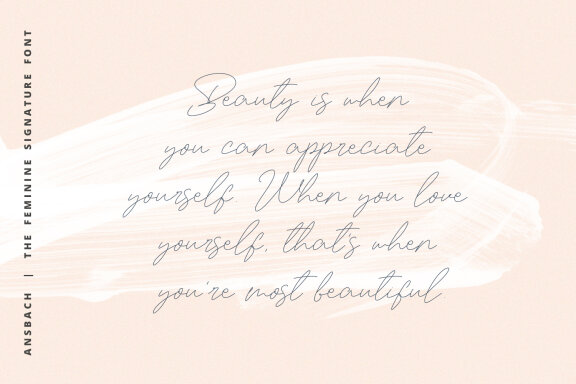 Beauty is when
you can appreciate
yourself. When you love
yourself, that's when
you're most beautiful.
ANSBACH | THE FEMININE SIGNATURE FONT